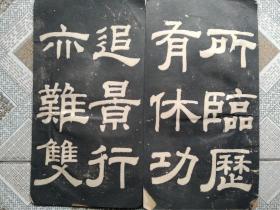 所臨歷
有休功
追景行
亦難雙